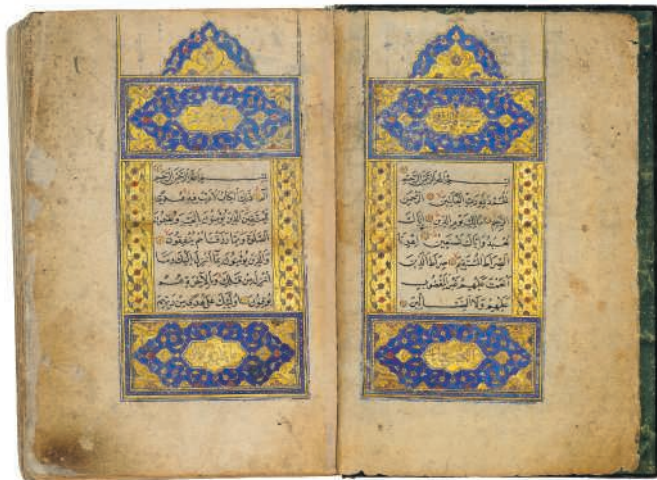 بسم الله الرحمن الرحيم
الحمد لله رب العالمين الرحمن
الرحيم مالك يوم الدين اياك
نعبد واياك نستعين اهدنا
الصراط المستقيم صراط الذين
انعمت عليهم غير المغضوب
عليهم ولا الضالين
بسم الله الرحمن الرحيم
الم ذلك الكتاب لا ريب فيه هدى
للمتقين الذين يؤمنون بالغيب ويقيمون
الصلوة ومما رزقناهم ينفقون
والذين يؤمنون بما انزل اليك وما
انزل من قبلك وبالاخرة هم
يوقنون اولئك على هدى من ربهم